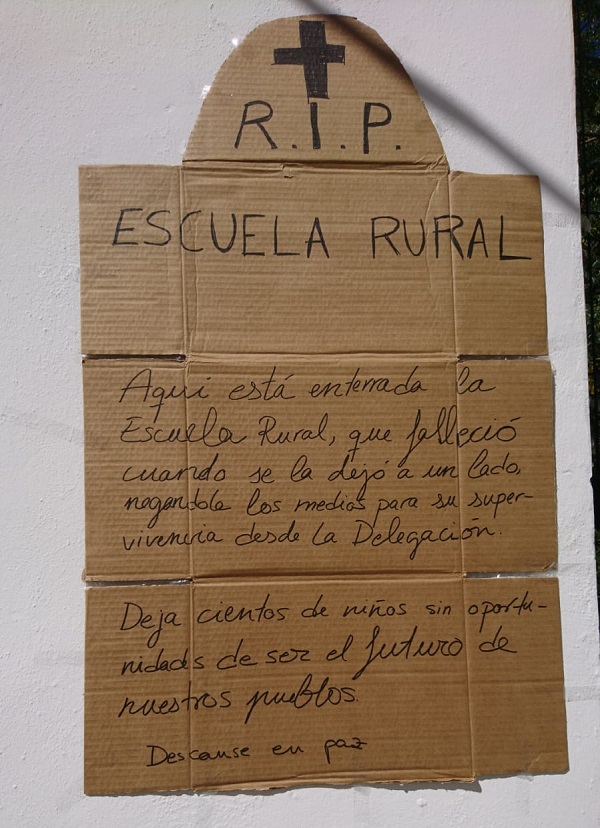 R.I.P.
ESCUELA RURAL
Aquí está enterrada la
Escuela Rural, que falleció
cuando se la dejó a un lado,
negandole los medios para su super-
vivencia desde la Delegación.
Deja cientos de niños sin oportu-
nidades de ser el futuro de
nuestros pueblos.
Descanse en paz